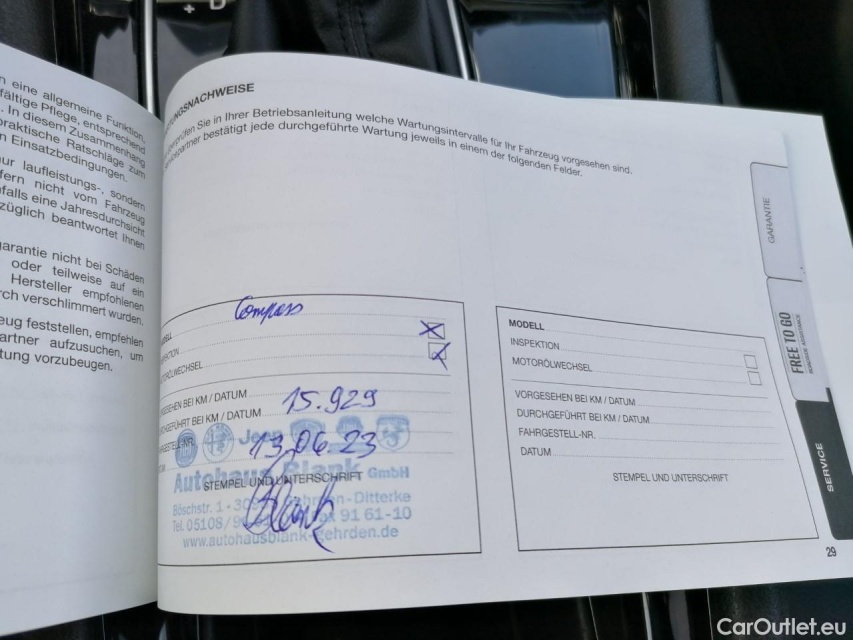 n eine allgemeine Funktion,
fältige Pflege, entsprechend
. In diesem Zusammenhang
praktische Ratschläge zum
n Einsatzbedingungen.
ur laufleistungs-, sondern
fern nicht vom Fahrzeug
falls eine Jahresdurchsicht
züglich beantwortet Ihnen
garantie nicht bei Schäden
oder teilweise auf ein
Hersteller empfohlenen
rch verschlimmert wurden.
eug feststellen, empfehlen
artner aufzusuchen, um
tung vorzubeugen.
UNGSNACHWEISE
erprüfen Sie in Ihrer Betriebsanleitung welche Wartungsintervalle für Ihr Fahrzeug vorgesehen sind.
vicepartner bestätigt jede durchgeführte Wartung jeweils in einem der folgenden Felder.
Compass
DELL
PEKTION
OTORÖLWECHSEL
RGESEHEN BEI KM / DATUM
15.929
CHGEFÜHRT BEI KM / DATUM
RGESTELL-NR.
Jeep
13.06.23
UM
Autohaus Blank GmbH
STEMPEL UND UNTERSCHRIFT
Böschstr. 1 - Gehrden-Ditterke
Tel. 05108/ 91 61-10
Blank
www.autohausblank-gehrden.de
MODELL
INSPEKTION
MOTORÖLWECHSEL
VORGESEHEN BEI KM / DATUM
DURCHGEFÜHRT BEI KM / DATUM
FAHRGESTELL-NR.
DATUM
STEMPEL UND UNTERSCHRIFT
GARANTIE
FREE TO GO
SERVICE
29
+ D
CarOutlet.eu